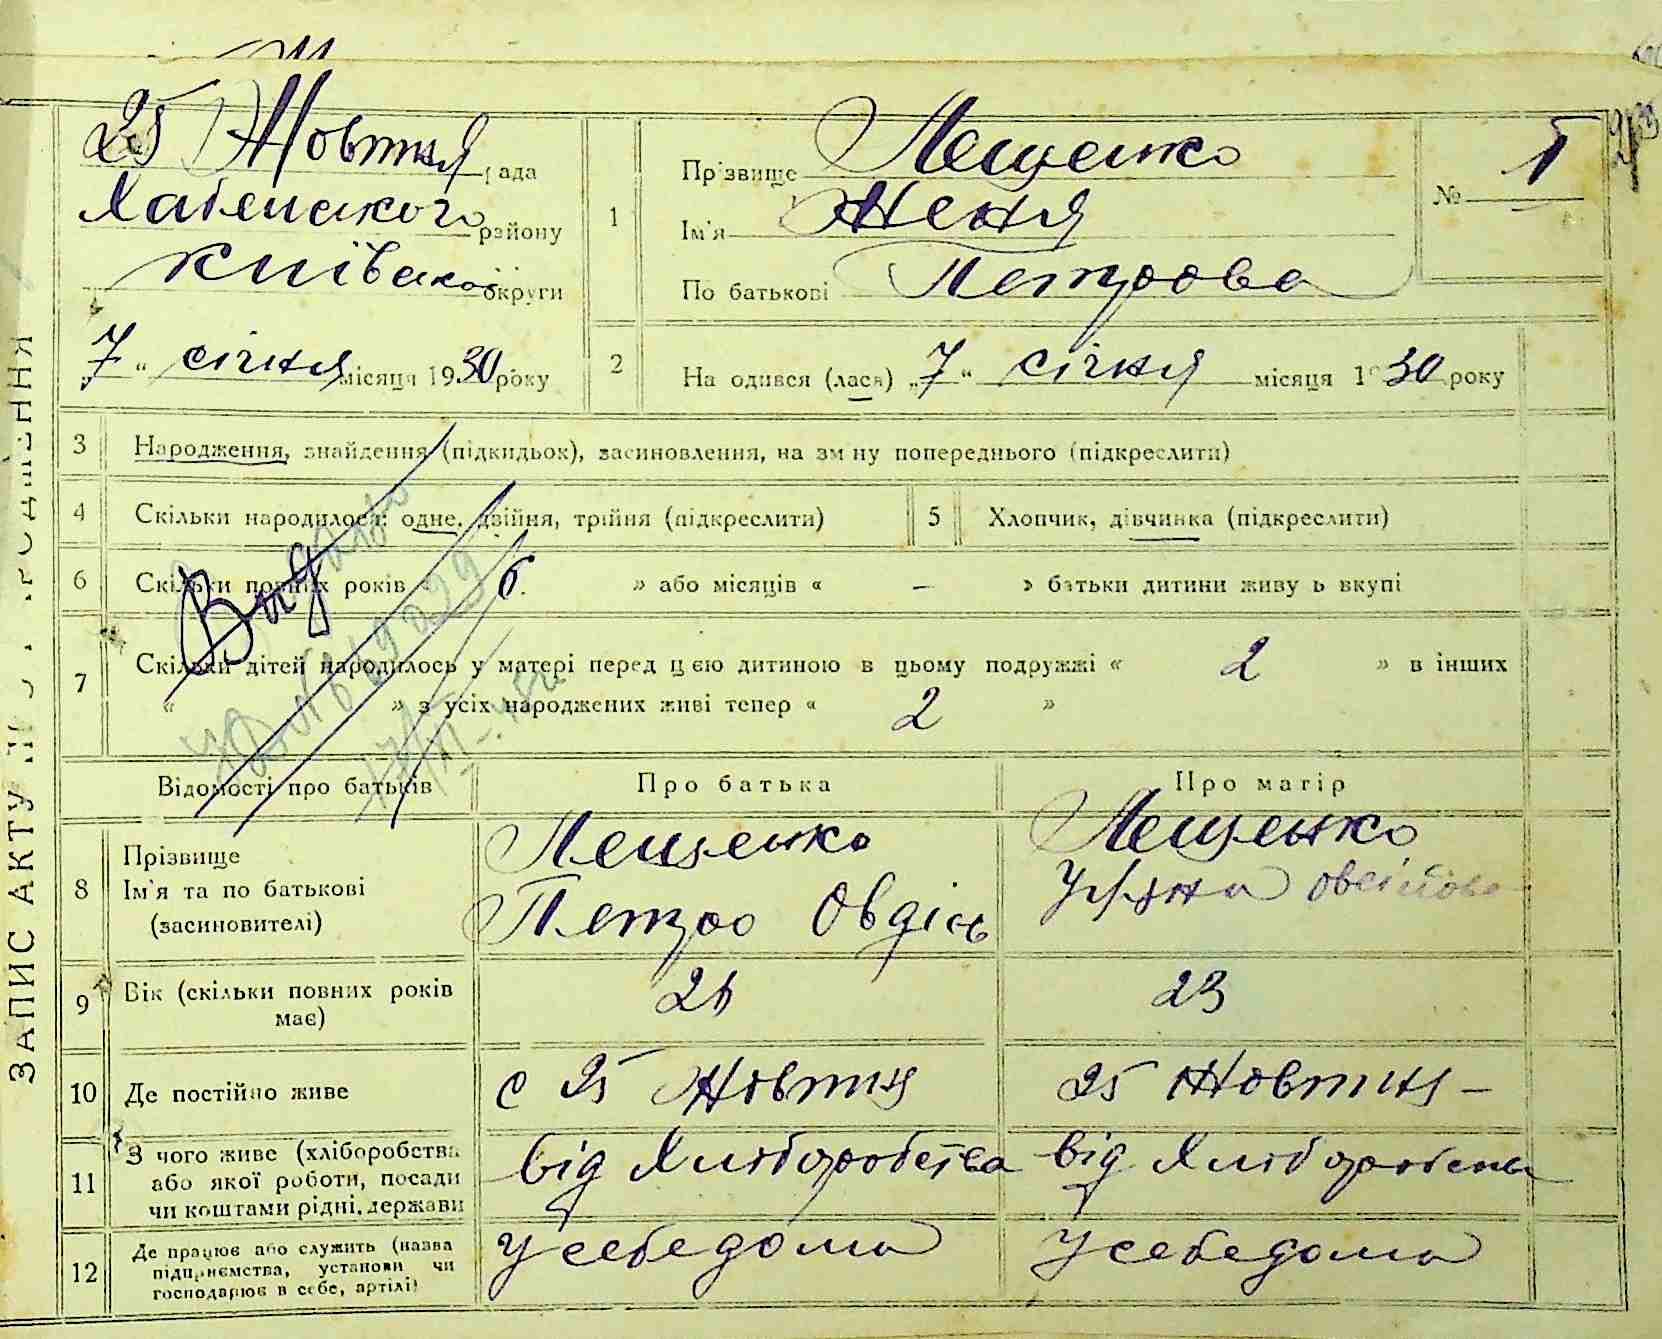 25 Жовтня рада
Хабенского району
Київської округи
„7“ січня місяця 1930 року
1
Прізвище Лещенко
Ім'я Женя
По батькові Петрова
№ 1
2
На одився (лася) „7“ січня місяця 1930 року
3 Народження, знайдення (підкидьок), засиновлення, на зм ну попереднього (підкреслити)
4 Скільки народилося: одне, двійня, трійня (підкреслити)
5 Хлопчик, дівчинка (підкреслити)
6 Скільки повних років « 6. » або місяців « — » батьки дитини живу ь вкупі
7 Скільки дітей народилось у матері перед цією дитиною в цьому подружжі « 2 » в інших
« » з усіх народжених живі тепер « 2 »
Видано
Відомості про батьків Про батька Про матір
8 Прізвище
Ім'я та по батькові
(засиновителі)
Лещенко
Петро Овдієв
Лещенко
9 Вік (скільки повних років
має)
23
10 Де постійно живе с 25 Жовтня 25 Жовтня —
11 З чого живе (хліборобства
або якої роботи, посади
чи коштами рідні, держави
від Хліборобства від Хліборобства
12 Де працює або служить (назва
підприємства, установи чи
господарює в себе, артілі)
У себе дома У себе дома
ЗАПИС АКТУ ПРО НАРОДЖЕННЯ